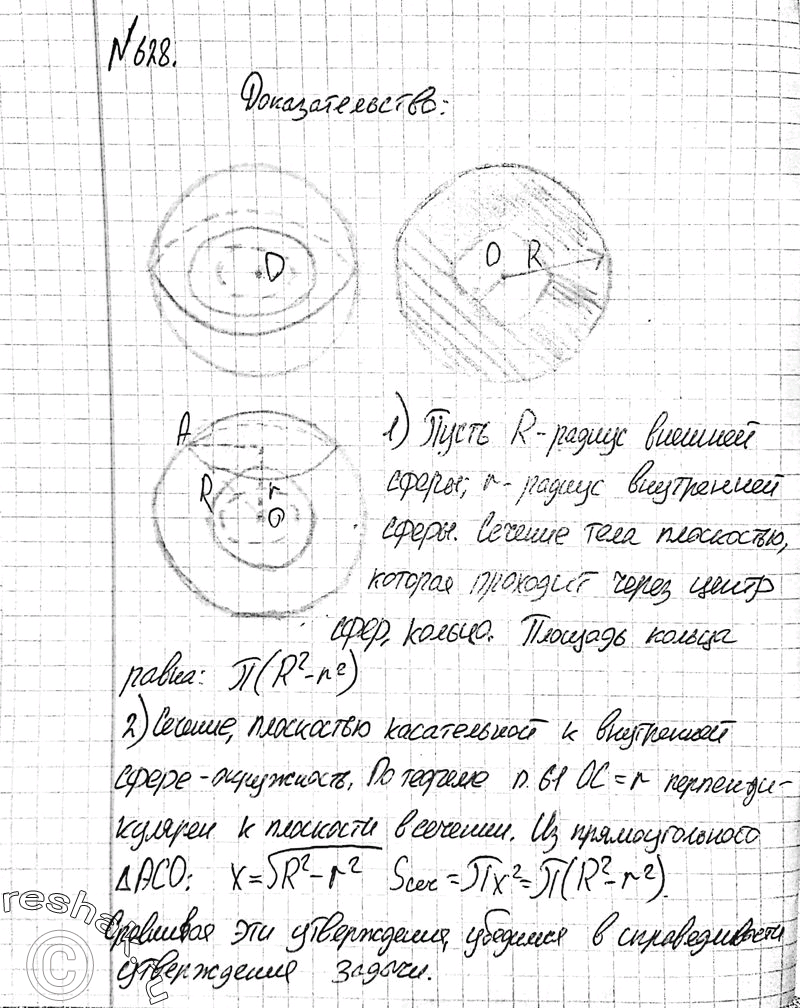 №628.
Доказательство:
O
O R
A
R
r
O
1) Пусть R - радиус внешней
сферы; r - радиус внутренней
сферы. Сечение тела плоскостью,
которая проходит через центр
сфер, кольцо. Площадь кольца
равна: П(R²-r²)
2) Сечение, плоскостью касательной к внутренней
сфере - окружность. По теореме п. 61 OC = r перпенди-
кулярен к плоскости в сечении. Из прямоугольного
ΔACO: x = √R²-r² Sсеч = Пx² = П(R²-r²).
Сравнивая эти утверждения, убедимся в справедливости
утверждения задачи.
reshak.ru
©